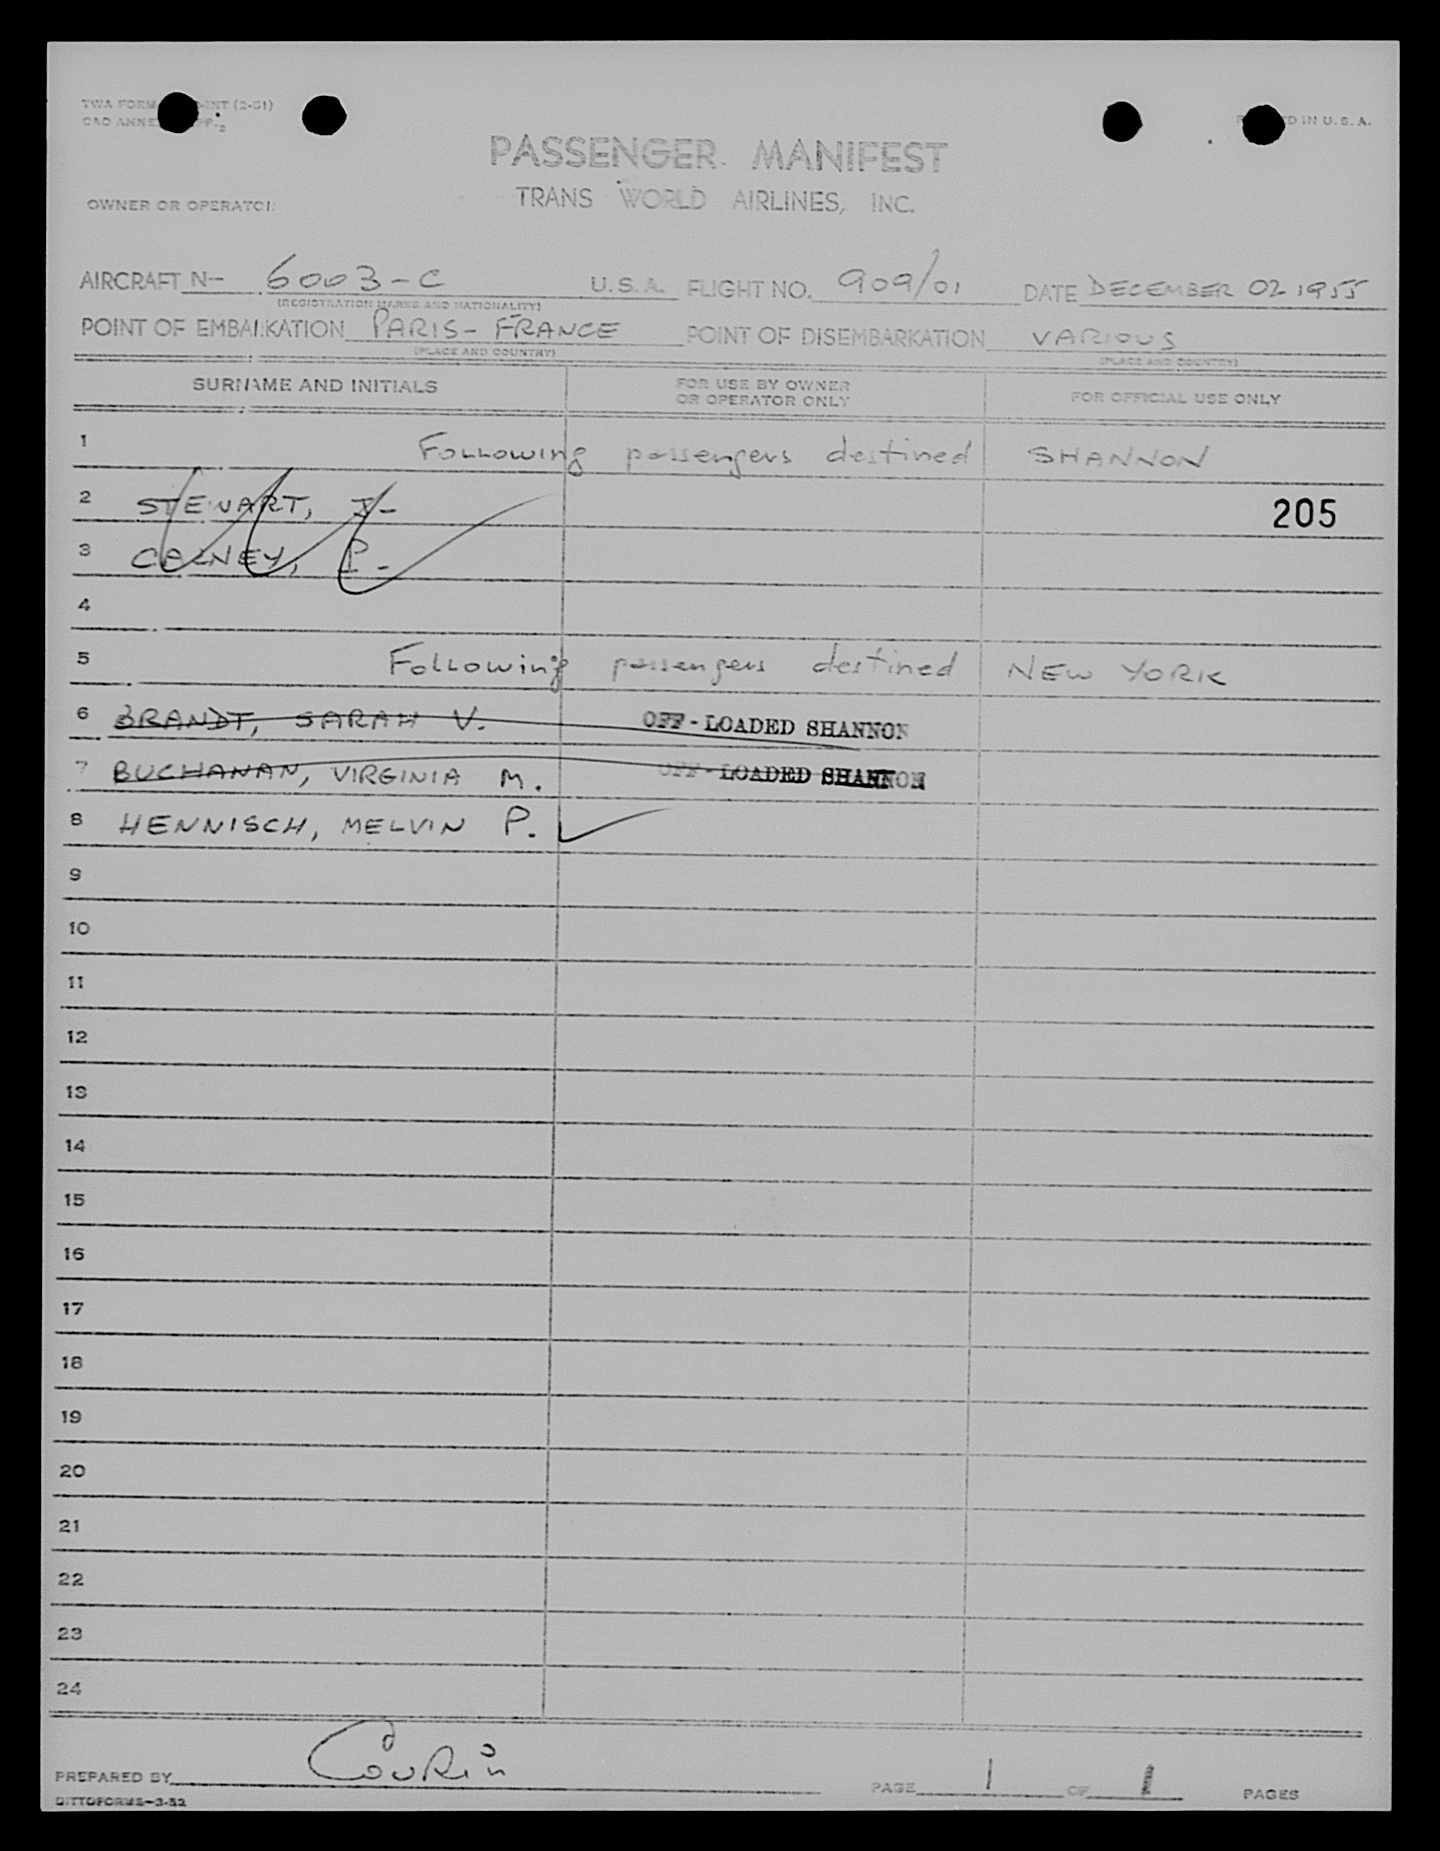 TWA FORM INT (2-51)
CAO ANNEX
PRINTED IN U.S.A.
PASSENGER MANIFEST
OWNER OR OPERATOR TRANS WORLD AIRLINES, INC.
AIRCRAFT N- 6003-C U.S.A. FLIGHT NO. 909/01 DATE DECEMBER 02 1955
(REGISTRATION MARKS AND NATIONALITY)
POINT OF EMBARKATION PARIS - FRANCE POINT OF DISEMBARKATION VARIOUS
(PLACE AND COUNTRY) (PLACE AND COUNTRY)
SURNAME AND INITIALS FOR USE BY OWNER OR OPERATOR ONLY FOR OFFICIAL USE ONLY
1 Following passengers destined SHANNON
2 STEWART, 205
3 P.
4
5 Following passengers destined NEW YORK
6 BRANDT, SARAH V. OFF-LOADED SHANNON
7 BUCHANAN, VIRGINIA M. OFF-LOADED SHANNON
8 HENNISCH, MELVIN P.
9
10
11
12
13
14
15
16
17
18
19
20
21
22
23
24
PREPARED BY PAGE 1 OF 1 PAGES
DITTOFORMS-3-52